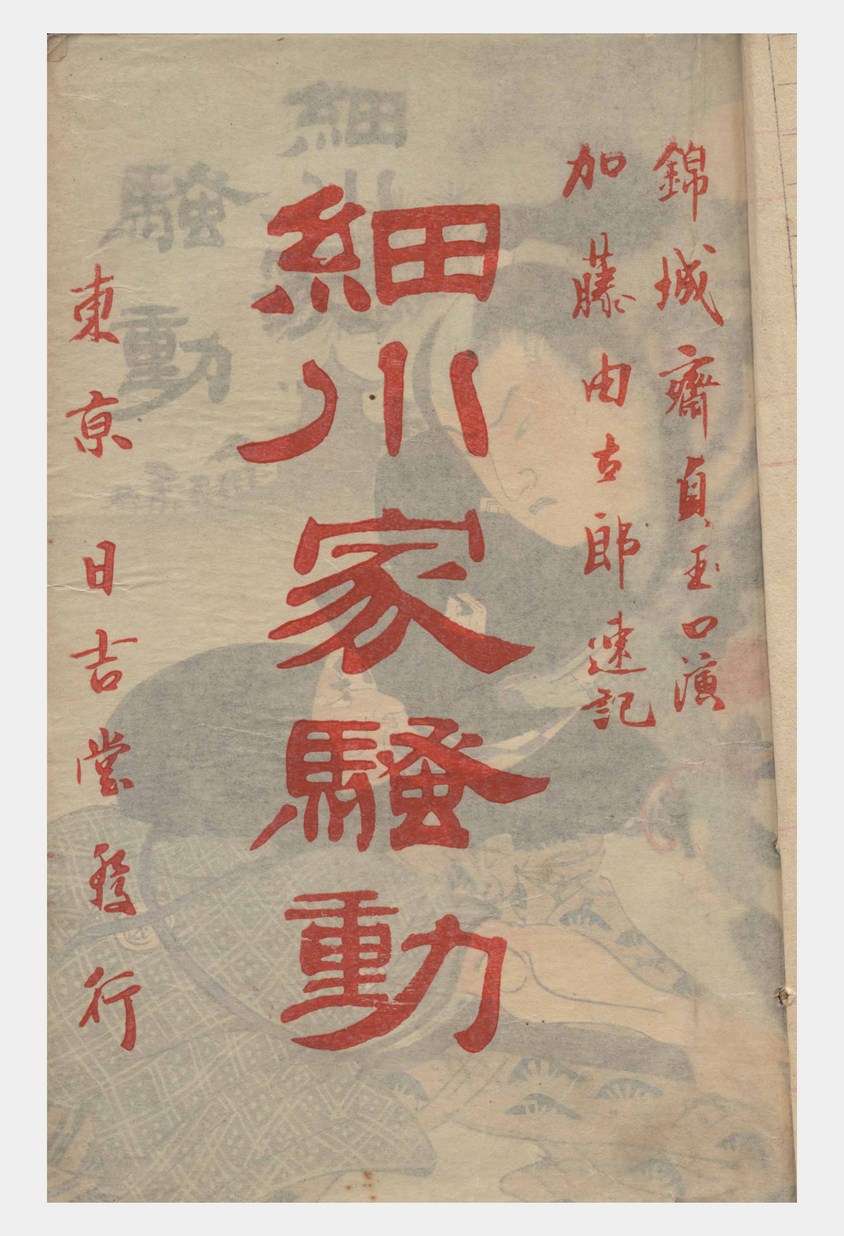 錦城齋貞玉口演
加藤由太郎速記
細川家騷動
東京 日吉堂發行